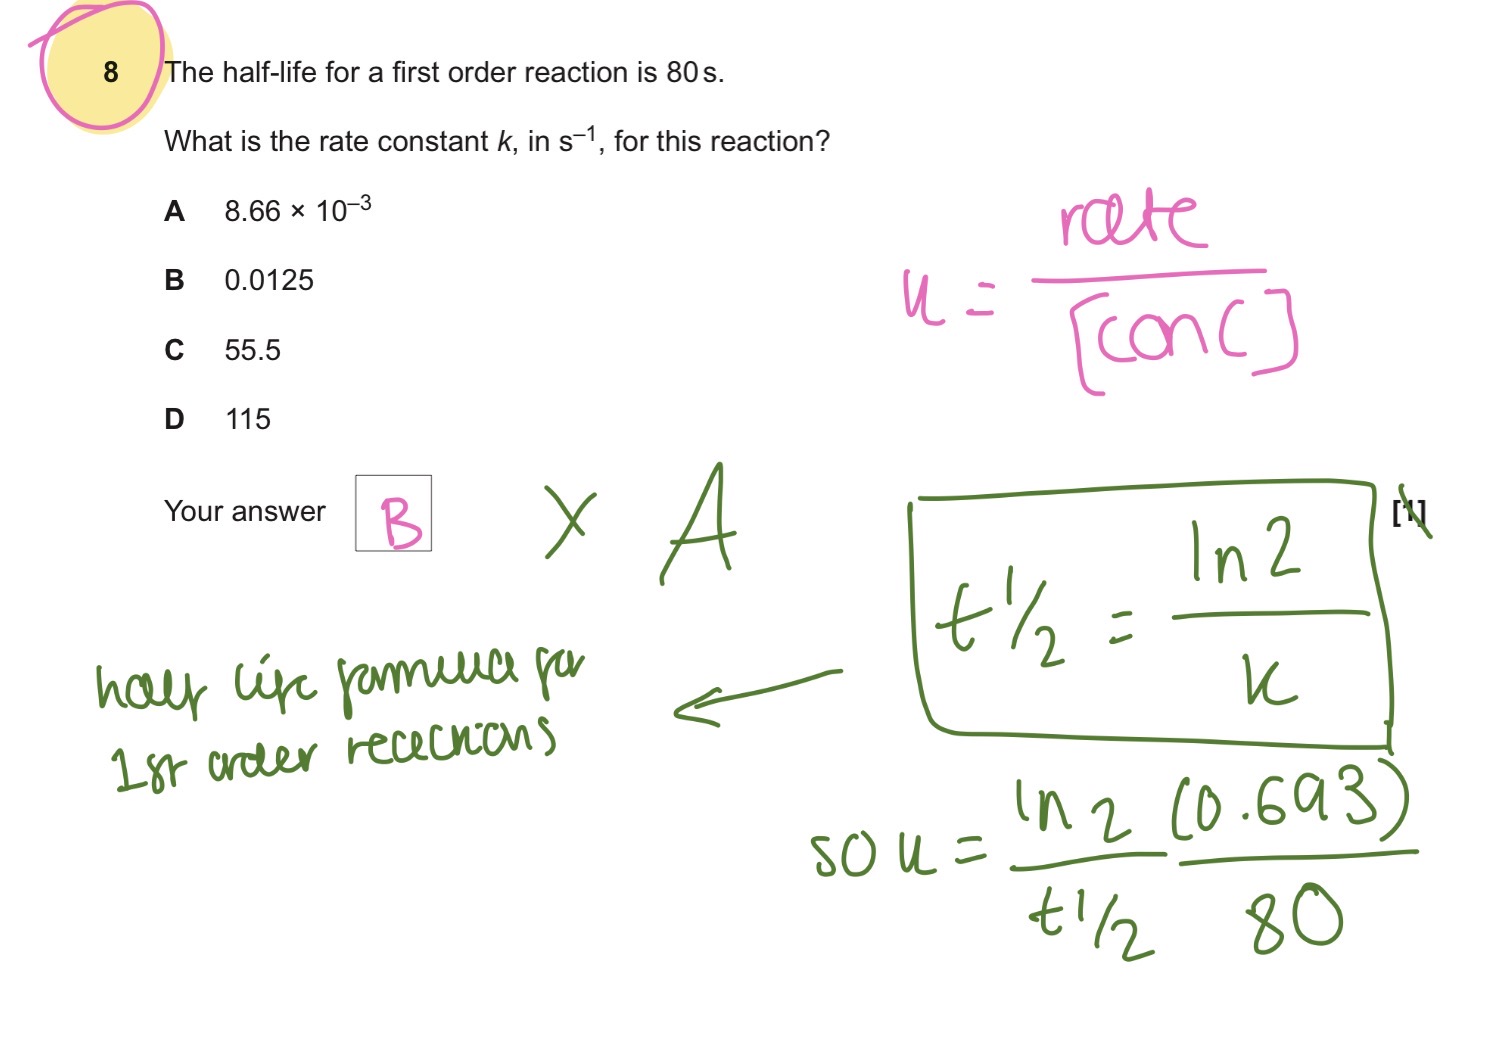 8 The half-life for a first order reaction is 80 s.
What is the rate constant k, in s⁻¹, for this reaction?
A 8.66 × 10⁻³
B 0.0125
C 55.5
D 115
k = rate / [conc]
Your answer B X A [1]
t½ = ln2 / k
half life formula for
1st order reactions
so k = ln2 / t½ (0.693) / 80